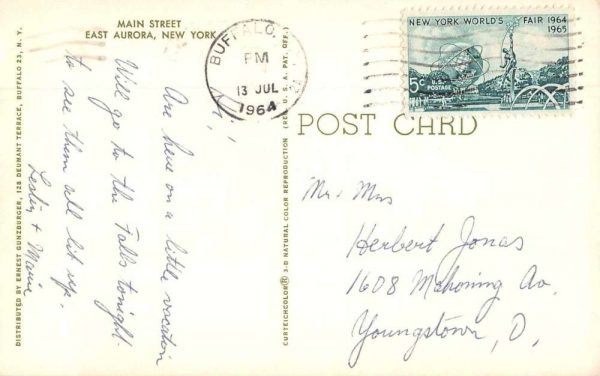 MAIN STREET
EAST AURORA, NEW YORK
DISTRIBUTED BY ERNEST GUNZBURGER, 128 DEUMANT TERRACE, BUFFALO 23, N. Y.
Hi,
Are here on a little vacation
Will go to the Falls tonight
to see them all lit up.
Leslie + Marie
CURTEICHCOLOR® 3-D NATURAL COLOR REPRODUCTION (REG. U. S. A. PAT. OFF.)
POST CARD
BUFFALO, N.Y.
PM
13 JUL
1964
NEW YORK WORLD'S FAIR 1964
1965
5c POSTAGE
Mr + Mrs
Herbert Jonas
1608 Mahoning Av.
Youngstown, O.